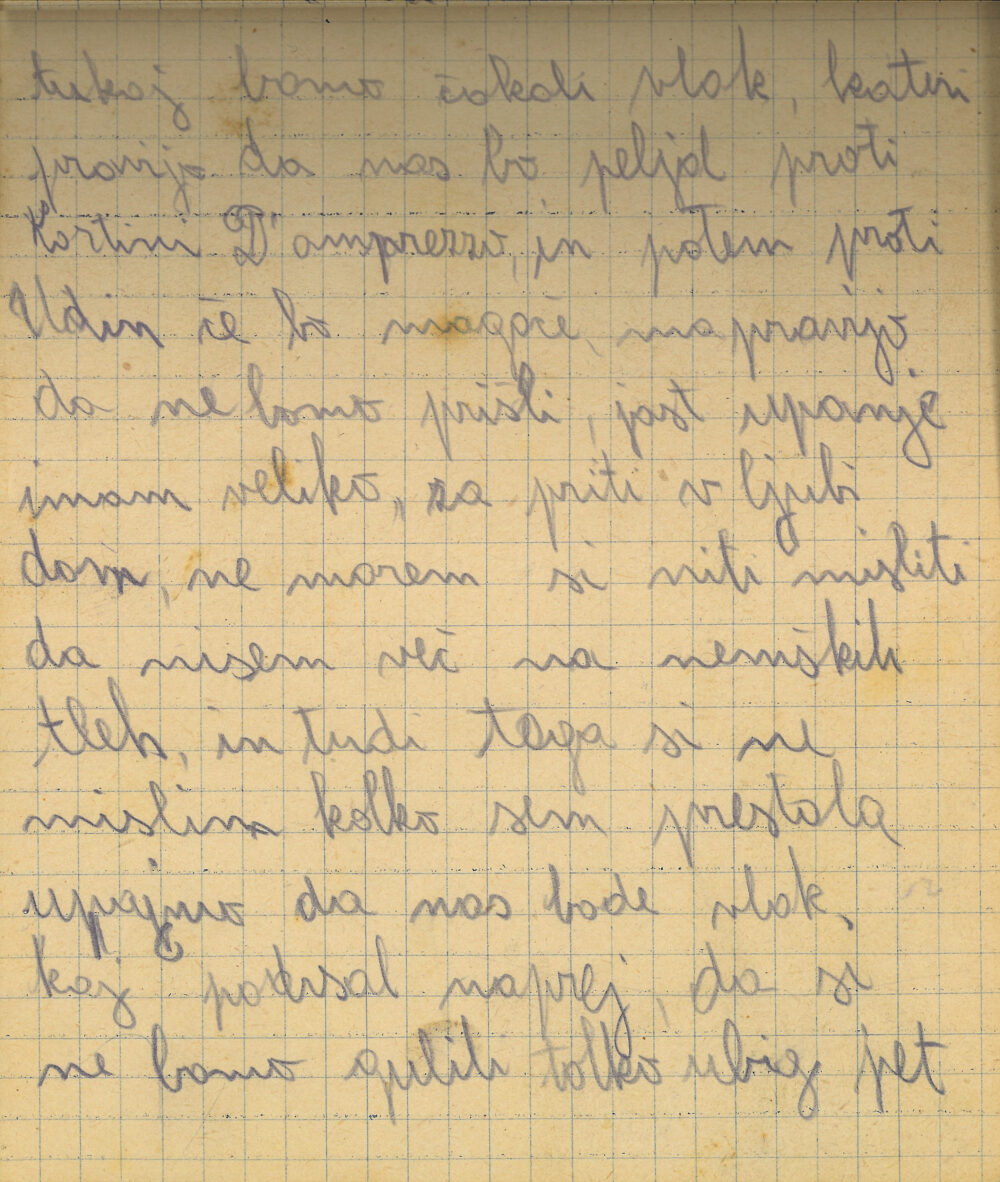 tukaj bomo čakali vlak, kateri
pravijo da nas bo peljal proti
Kortini D'amprezzo, in potem proti
Udin če bo mogoče, ma pravijo
da ne bomo prišli, jast upanje
imam veliko, za priti v ljubi
dom, ne morem si niti misliti
da nisem več na nemških
tleh, in tudi tega si ne
mislim kolko sem prestala
upajmo da nas bode vlak,
kaj podrsal naprej, da si
ne bomo gulili tolko ubig pet